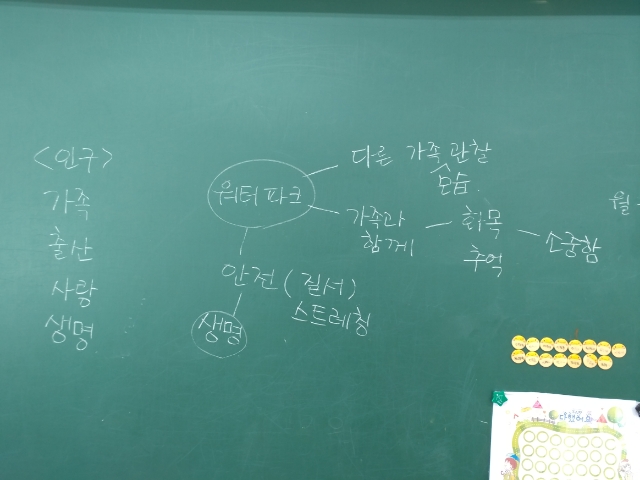 <인구>
가족
출산
사랑
생명
워터파크
다른 가족 관찰
모습.
가족과
함께
화목
추억
소중함
안전 (질서)
스트레칭
생명
월